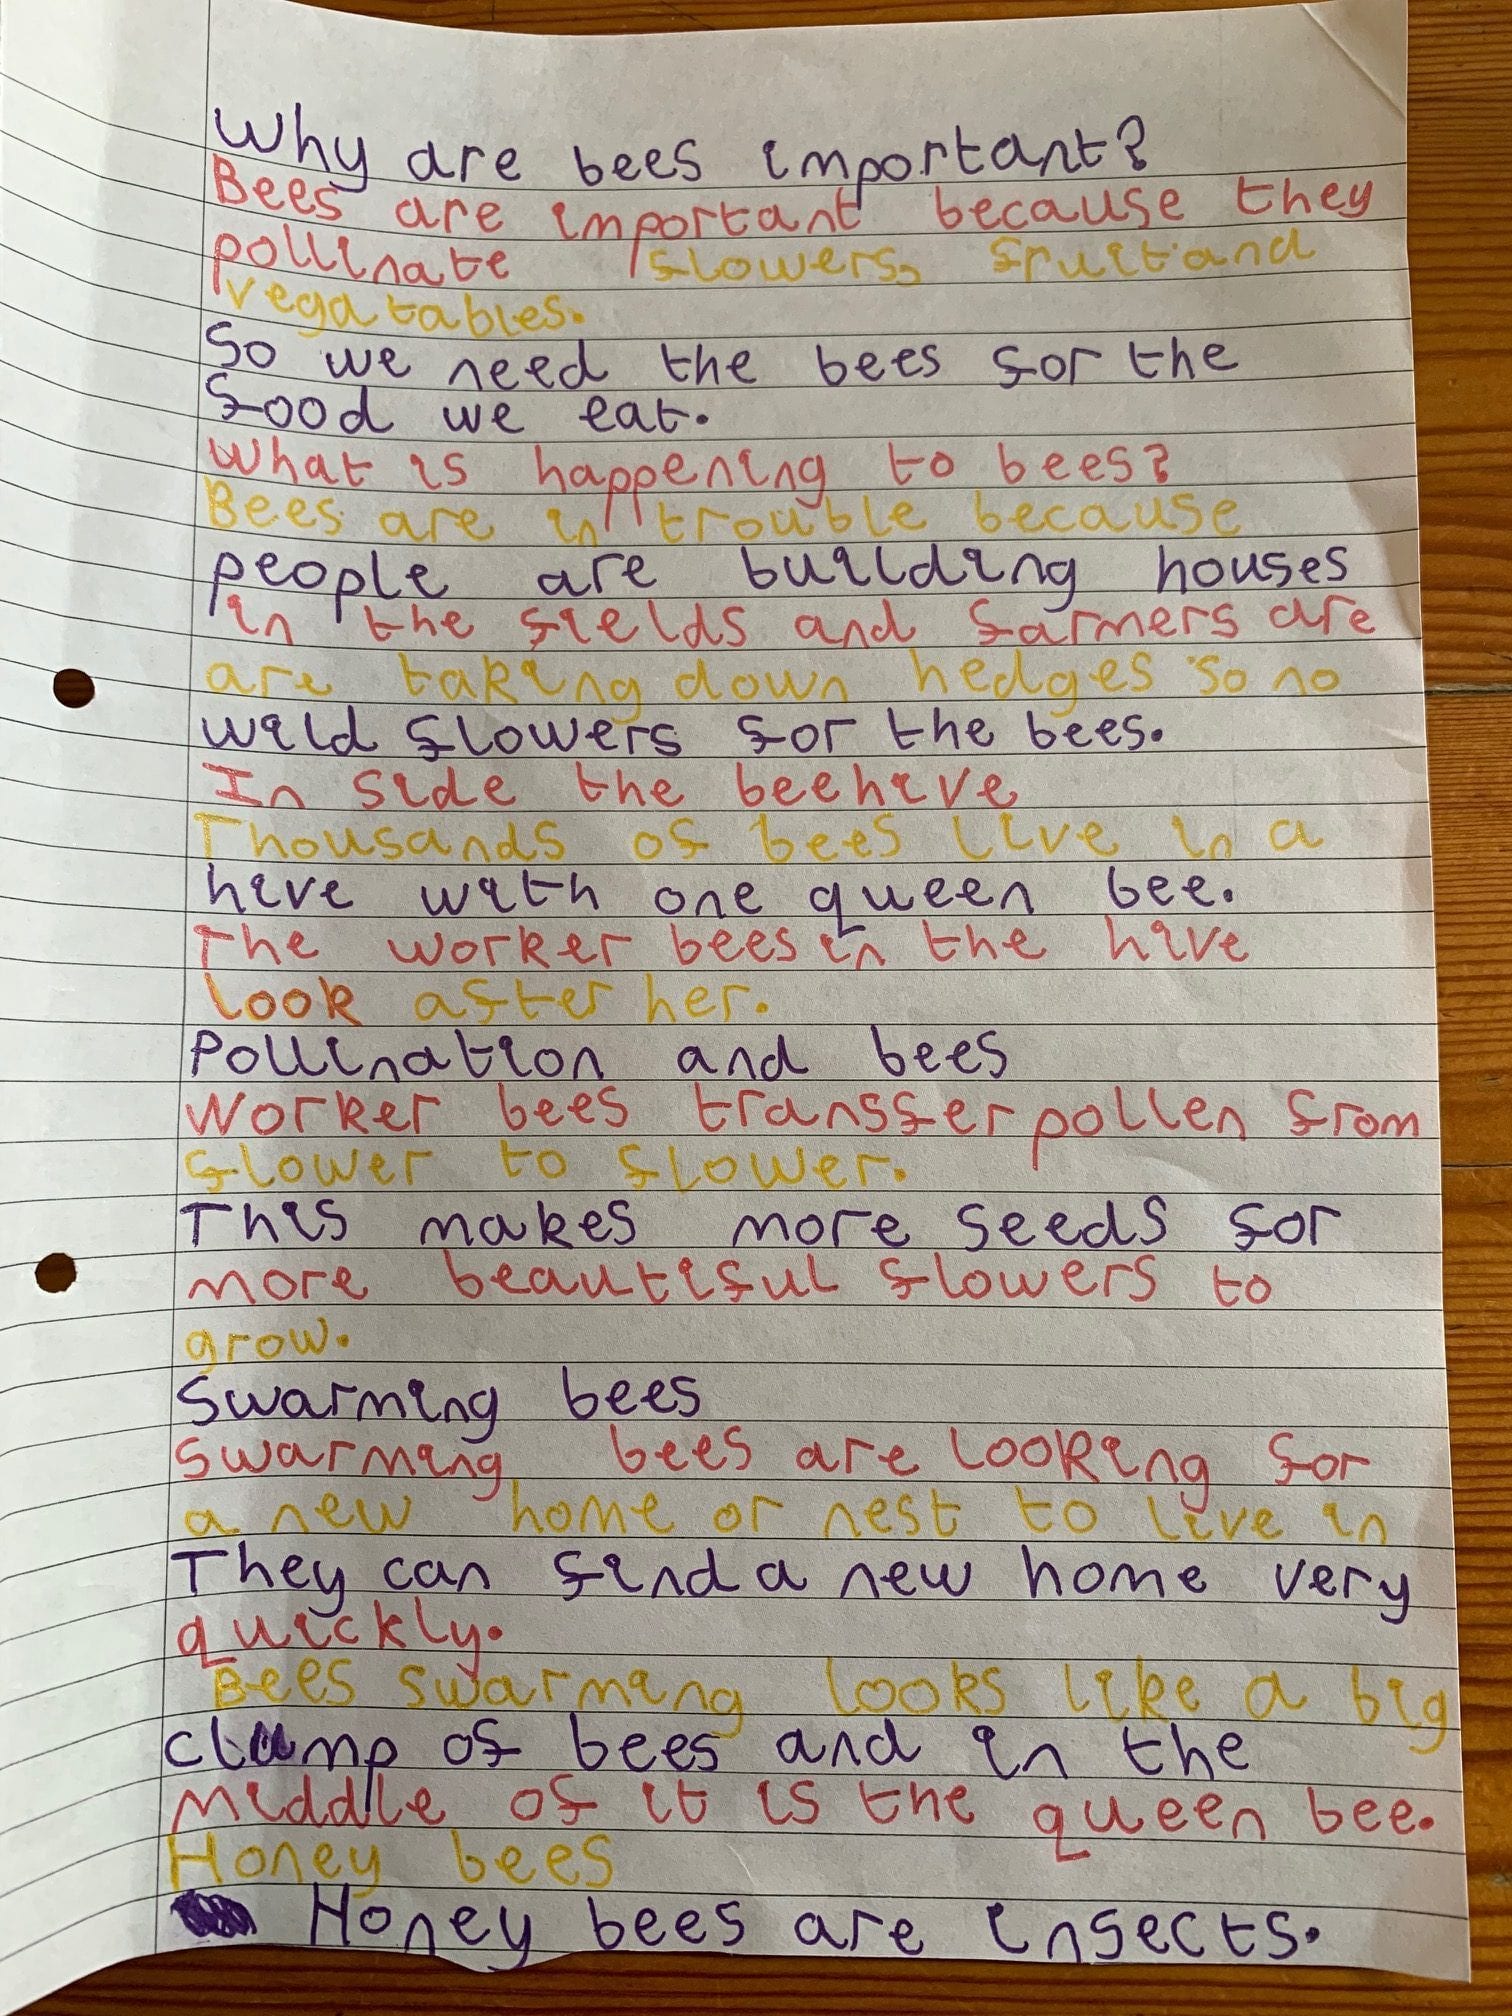 Why are bees important?
Bees are important because they
pollinate flowers, fruit and
vegatables.
So we need the bees for the
food we eat.
What is happening to bees?
Bees are in trouble because
people are building houses
in the fields and farmers are
are taking down hedges so no
wild flowers for the bees.
In side the beehive
Thousands of bees live in a
hive with one queen bee.
The worker bees in the hive
look after her.
Pollination and bees
Worker bees transfer pollen from
flower to flower.
This makes more seeds for
more beautiful flowers to
grow.
Swarming bees
Swarming bees are looking for
a new home or nest to live in
They can find a new home very
quickly.
Bees swarming looks like a big
clump of bees and in the
middle of it is the queen bee.
Honey bees
Honey bees are insects.